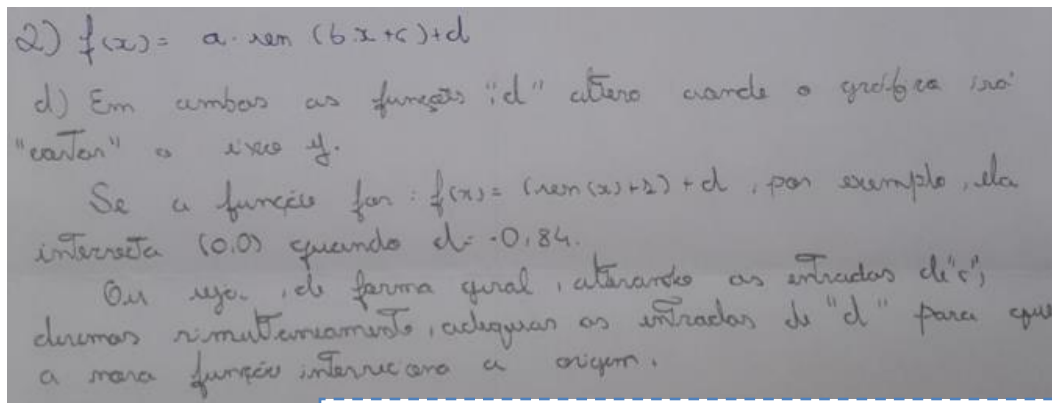 2) f(x) = a. sen (bx+c)+d
d) Em ambas as funções "d" altera aonde o gráfico irá
"cortar" o eixo y.
Se a função for: f(x) = (sen(x)+1) + d, por exemplo, ela
intersecta (0,0) quando d= -0,84.
Ou seja, de forma geral, alterando as entradas de "c",
devemos simultaneamente, adequar as entradas de "d" para que
a nova função interseciona a origem.